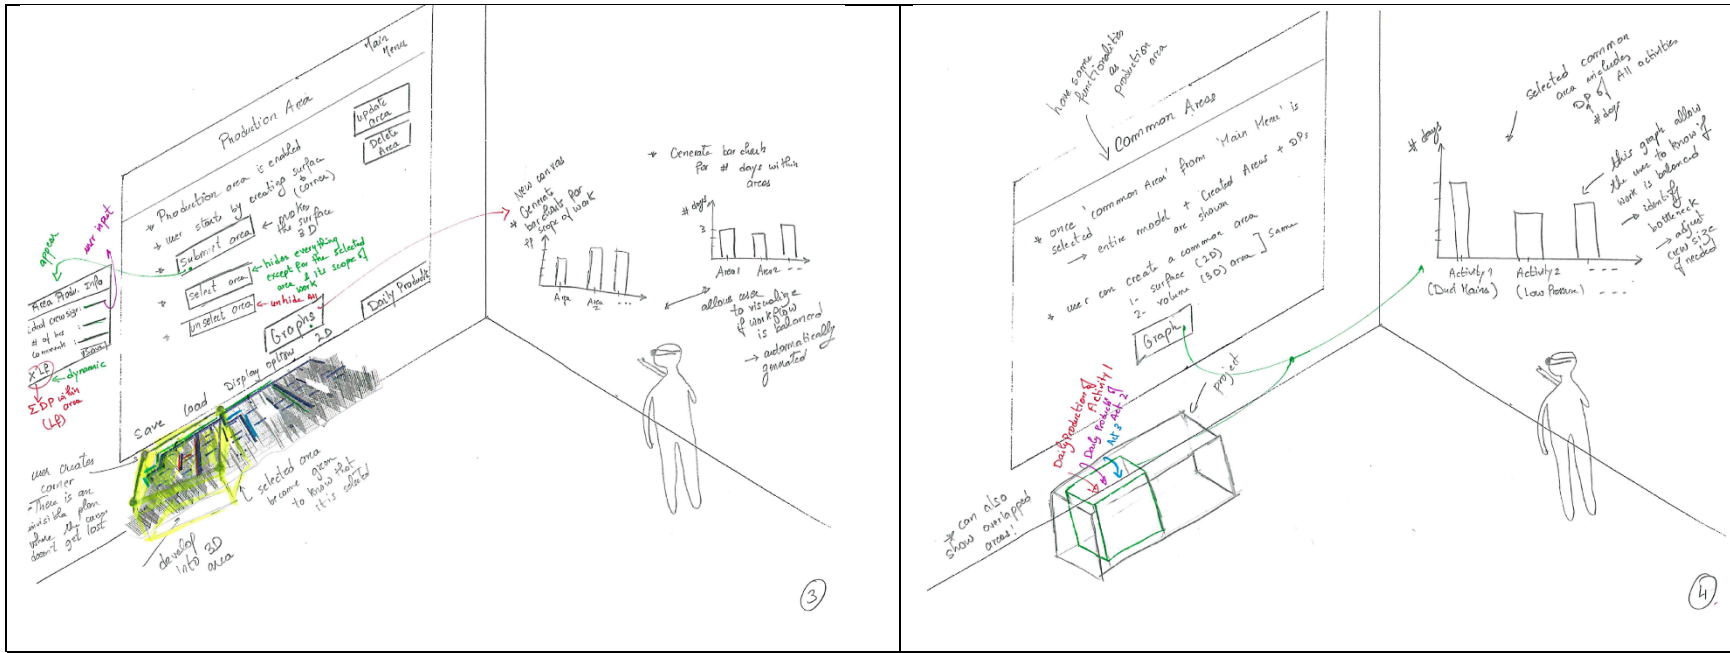 Main
Menu
Production Area
update
area
Delete
Area
* Production area is enabled
* user starts by creating surface
(corner)
* Submit area ← makes
the surface
3D
* select area ← hides everything
except for the selected
area & its scope of
work
* unselect area ← unhide All
Graphs
Daily Production
Display option 2D
save
load
appear
user input
Area Produ. Info
# of hrs
comments :
Save
X LF ← dynamic
Σ DP within
area
(LF)
user creates
corner
- There is an
invisible plan
where the corner
doesn't get lost
develop
into 3D
area
selected area
become green
to know that
it is selected
* New canvas
Generate
bar charts for
scope of work
Area
Area
2
...
* Generate bar charts
for # days within
areas
# days
3
Area1
Area2
- - -
allows user
to visualize
if workflow
is balanced
→ automatically
generated
3
have same
functionalities
as
production
area
Common Areas
* once 'common Area' from 'Main Menu' is
selected
→ entire model + Created Areas + DPs
are shown
* user can create a common area
1- surface (2D)
2- volume (3D) area ] same
Graph
project
Daily Production of
Activity 1
Daily Product. of
Act 2
Act 3
* can also
show overlapped
areas!
selected common
area includes
DP of All activities
# days
# days
Activity 1
(Duct Mains)
Activity 2
(Low Pressure)
- - - -
this graph allow
the user to know if
work is balanced
→ identify
bottleneck
→ adjust
crew size
if needed
4